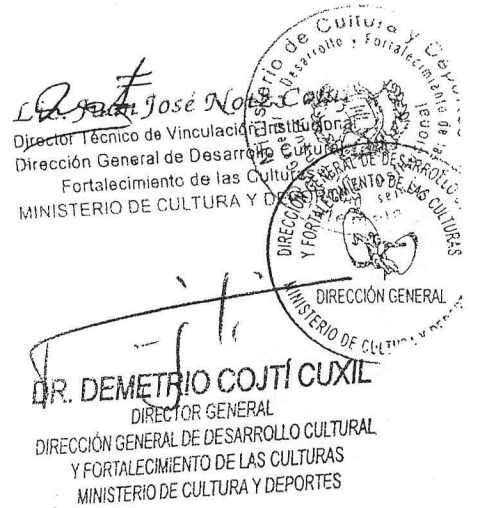 Lic. Juan José
Director Técnico de Vinculación Institucional
Dirección General de Desarrollo Cultural y
Fortalecimiento de las Culturas
MINISTERIO DE CULTURA Y DEPORTES
Ministerio de Cultura y Deportes
Desarrollo y Fortalecimiento de
DIRECCIÓN GENERAL DE DESARROLLO
Y FORTALECIMIENTO DE LAS CULTURAS
DIRECCIÓN GENERAL
MINISTERIO DE CULTURA Y DEP
DR. DEMETRIO COJTÍ CUXIL
DIRECTOR GENERAL
DIRECCIÓN GENERAL DE DESARROLLO CULTURAL
Y FORTALECIMIENTO DE LAS CULTURAS
MINISTERIO DE CULTURA Y DEPORTES